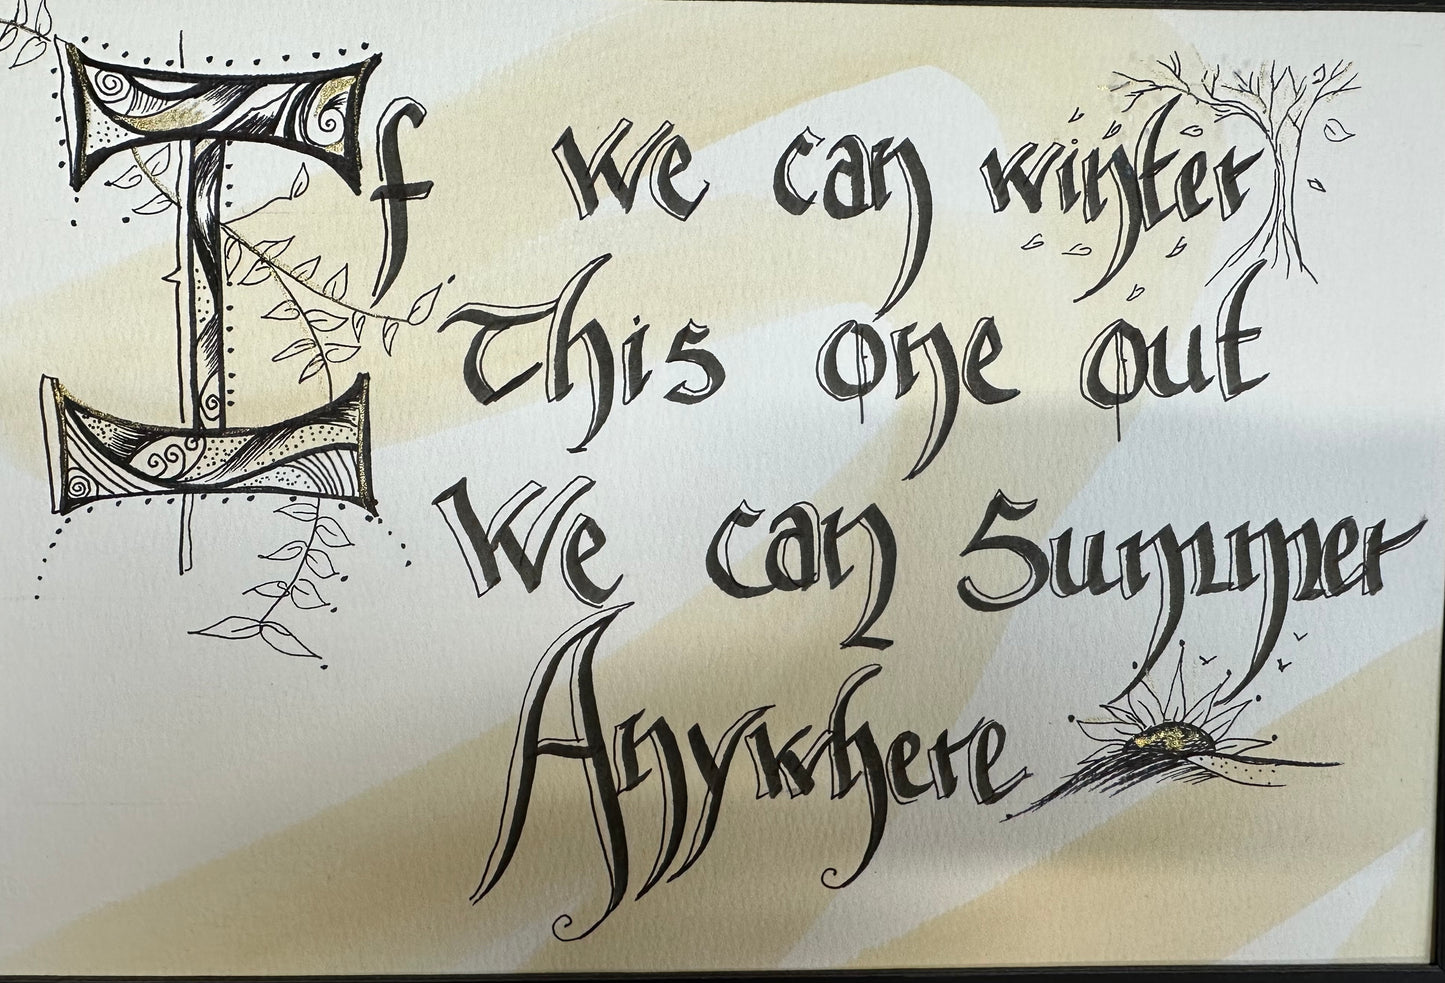 If we can winter
This one out
We can Summer
Anywhere